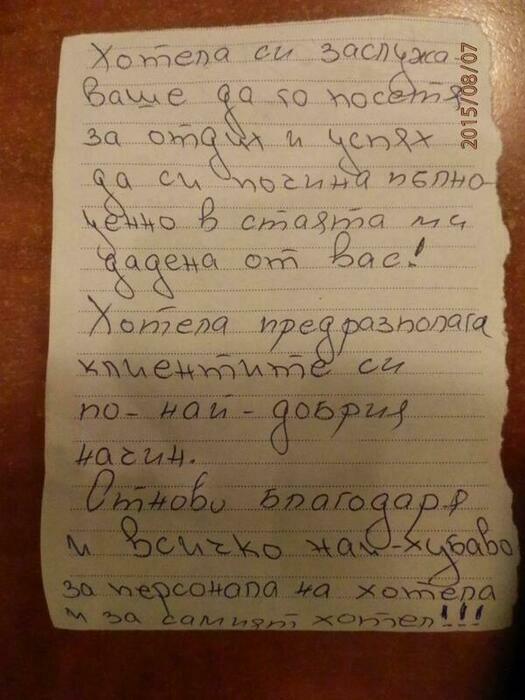 Хотела си заслужа
ваше да го посетя
за отдих и успях
да си почина пълно-
ценно в стаята ми
дадена от вас!
Хотела предразполага
клиентите си
по-най-добрия
начин.
Отново благодаря
и всичко най-хубаво
за персонала на хотела
и за самият хотел!!!
2015/08/07